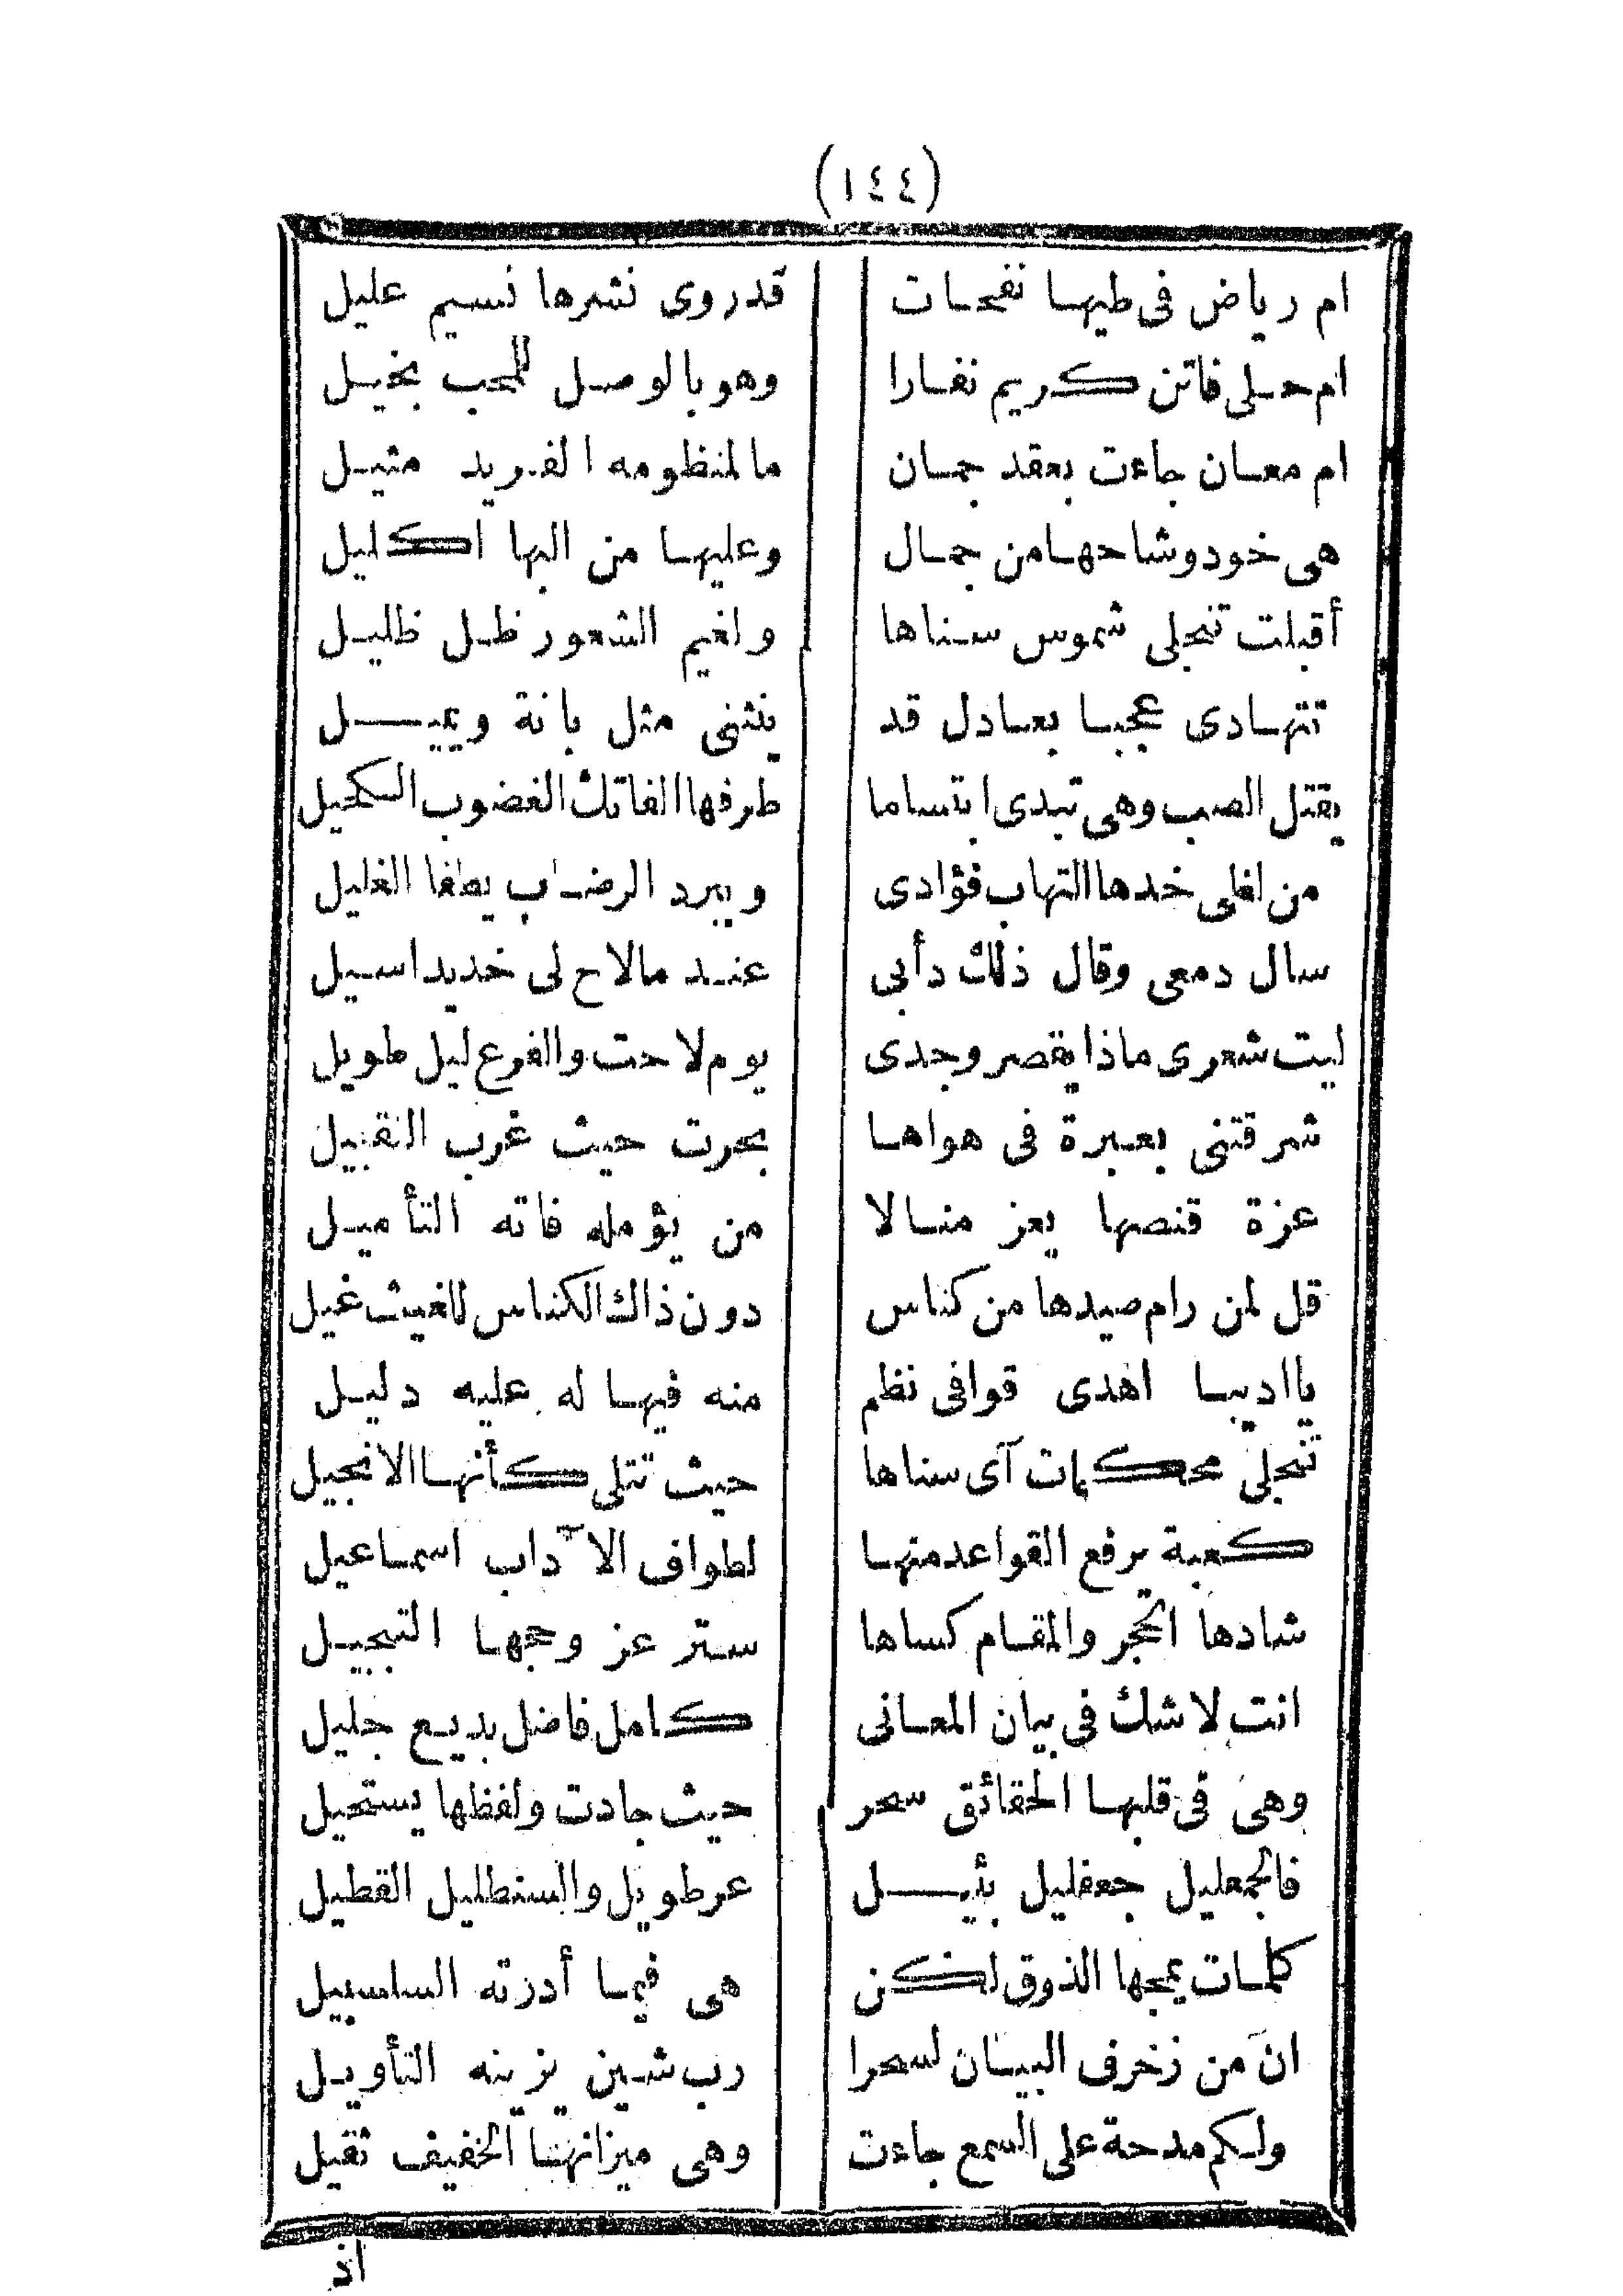 (١٤٤)
ام رياض فى طيها نفحات قدروى نشرها نسيم عليل
ام حلى فاتن كريم نفارا وهو بالوصل للمحب بخيل
ام معان جاءت بعقد جمان مالمنظومه الفريد مثيل
هى خود وشاحها من جمال وعليها من البها اكليل
أقبلت تنجلى شموس سناها ولغيم الشعور ظل ظليل
تتهادى عجبا بعادل قد ينثنى مثل بانة ويميل
يقتل الصب وهى تبدى ابتساما طرفها الفاتك الغضوب الكحيل
من لظى خدها التهاب فؤادى وببرد الرضاب يطفا الغليل
سال دمعى وقال ذلك دأبى عند مالاح لى خديد اسيل
ليت شعرى ماذا يقصر وجدى يوم لاحت والفرع ليل طويل
شرقتنى بعبرة فى هواها بحرت حيث غرب التقبيل
عزة قنصها يعز منالا من يؤمله فاته التأميل
قل لمن رام صيدها من كناس دون ذاك الكناس للغيث غيل
يااديبا اهدى قوافى نظم منه فيها له عليه دليل
تنجلى محكمات آى سناها حيث تتلى كأنها الانجيل
كعبة يرفع القواعد منها لطواف الآداب اسماعيل
شادها الحجر والمقام كساها ستر عز وحجها التبجيل
انت لاشك فى بيان المعانى كامل فاضل بديع جليل
وهى فى قلبها الحقائق سحر حيث جادت ولفظها يستحيل
فالجمعليل جعفليل بئيل عرطويل والسنطليل القطيل
كلمات يمجها الذوق لكن هى فيما أدرته السلسبيل
ان من زخرف البيان لسحرا رب شين يزينه التأويل
ولكم مدحة على السمع جاءت وهى ميزانها الخفيف ثقيل
اذ